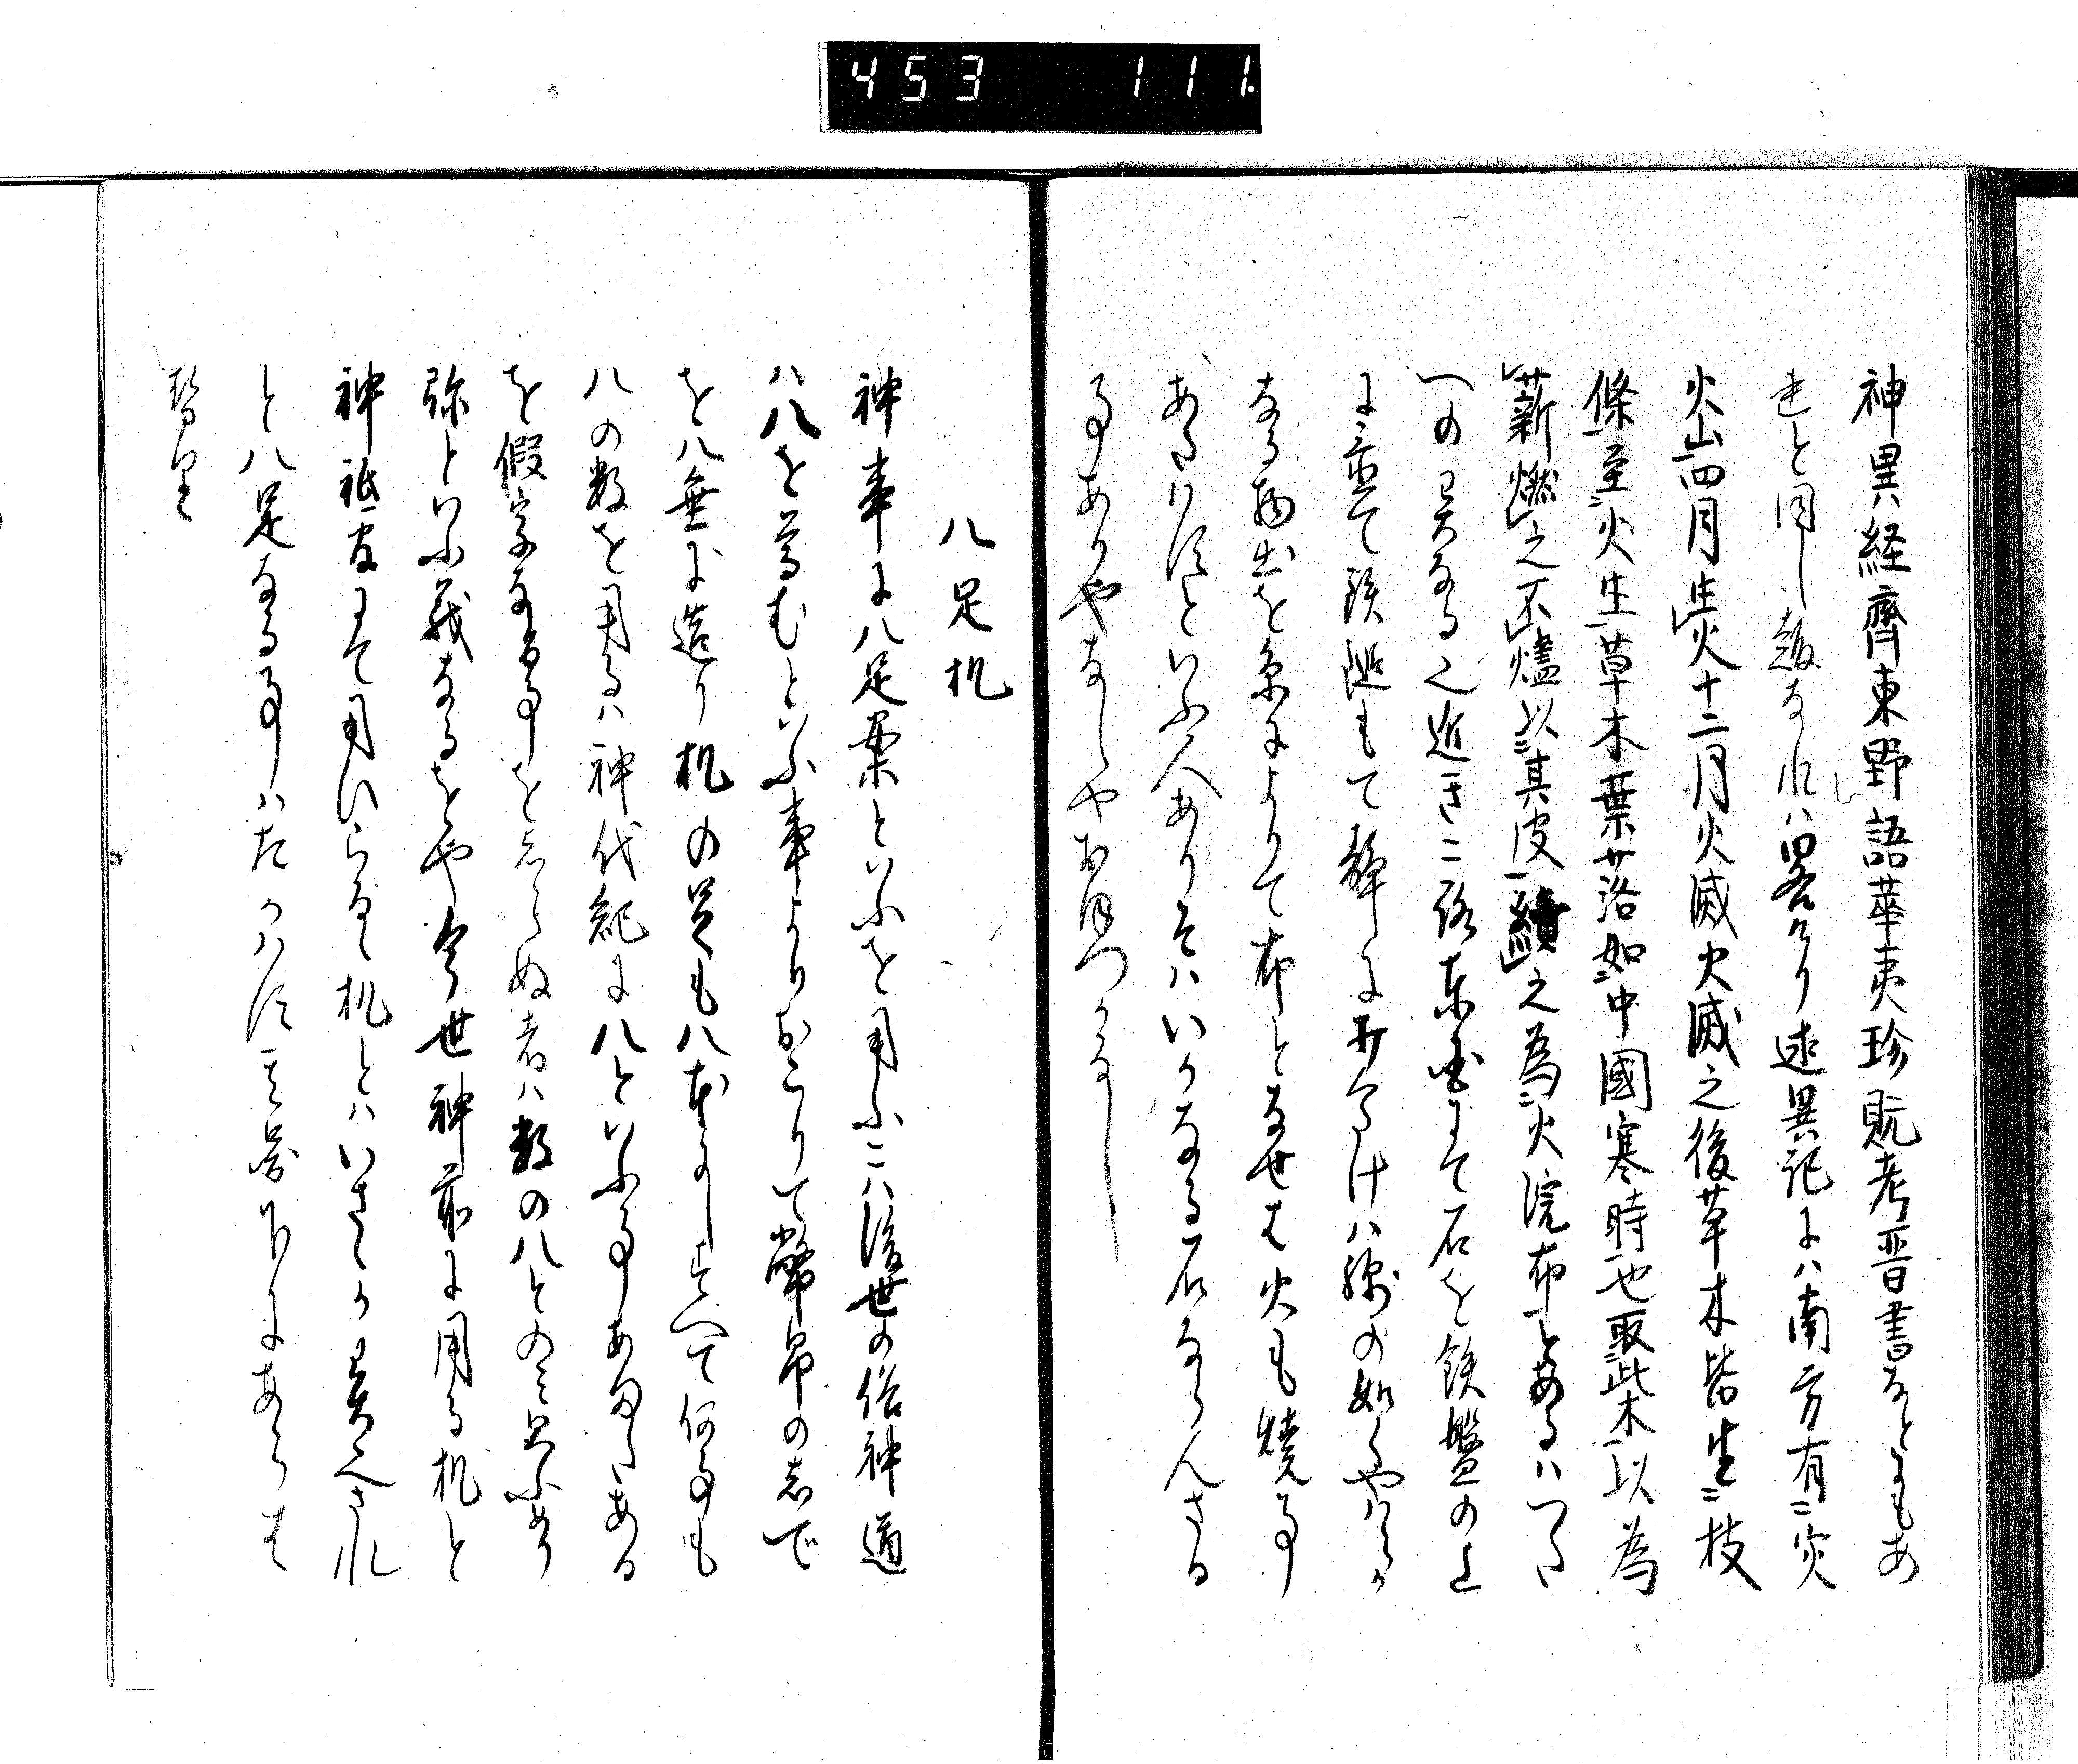 453 111.
神異経齊東野語華夷珍玩考晋書なとにもあ
れと同し趣なれハ畧けり述異記にハ南方有炎
火山四月生火十二月火滅火滅之後草木皆生枝
條至火生草木葉落如中國寒時也取此木以為
薪燃之不燼以其皮績之為火浣布とあるハつた
への異なる也近きころ東国にて石を鉄盤の上
に置て鉄槌もて静に打たけハ綿の如くやハらか
なる物出を糸によりて布となせは火も焼事
あたハすといふ人ありそハいかなる石ならんさる
事ありやなしやおほつかなし
八足机
神事に八足案といふを用ふこハ後世の俗神道
ハ八を尊むといふ事よりおこりて幣帛の志で
を八垂に造り机の足も八本にしすへて何事も
八の数を用るハ神代紀に八といふ事あまたある
を假字なる事をしらぬ者ハ数の八とのミ思ふめり
弥といふ義なるをや今世神前に用る机と
神祇官にて用いらるゝ机とハいさゝか異へされ
と八足なる事ハたかハす其畧下にあらは